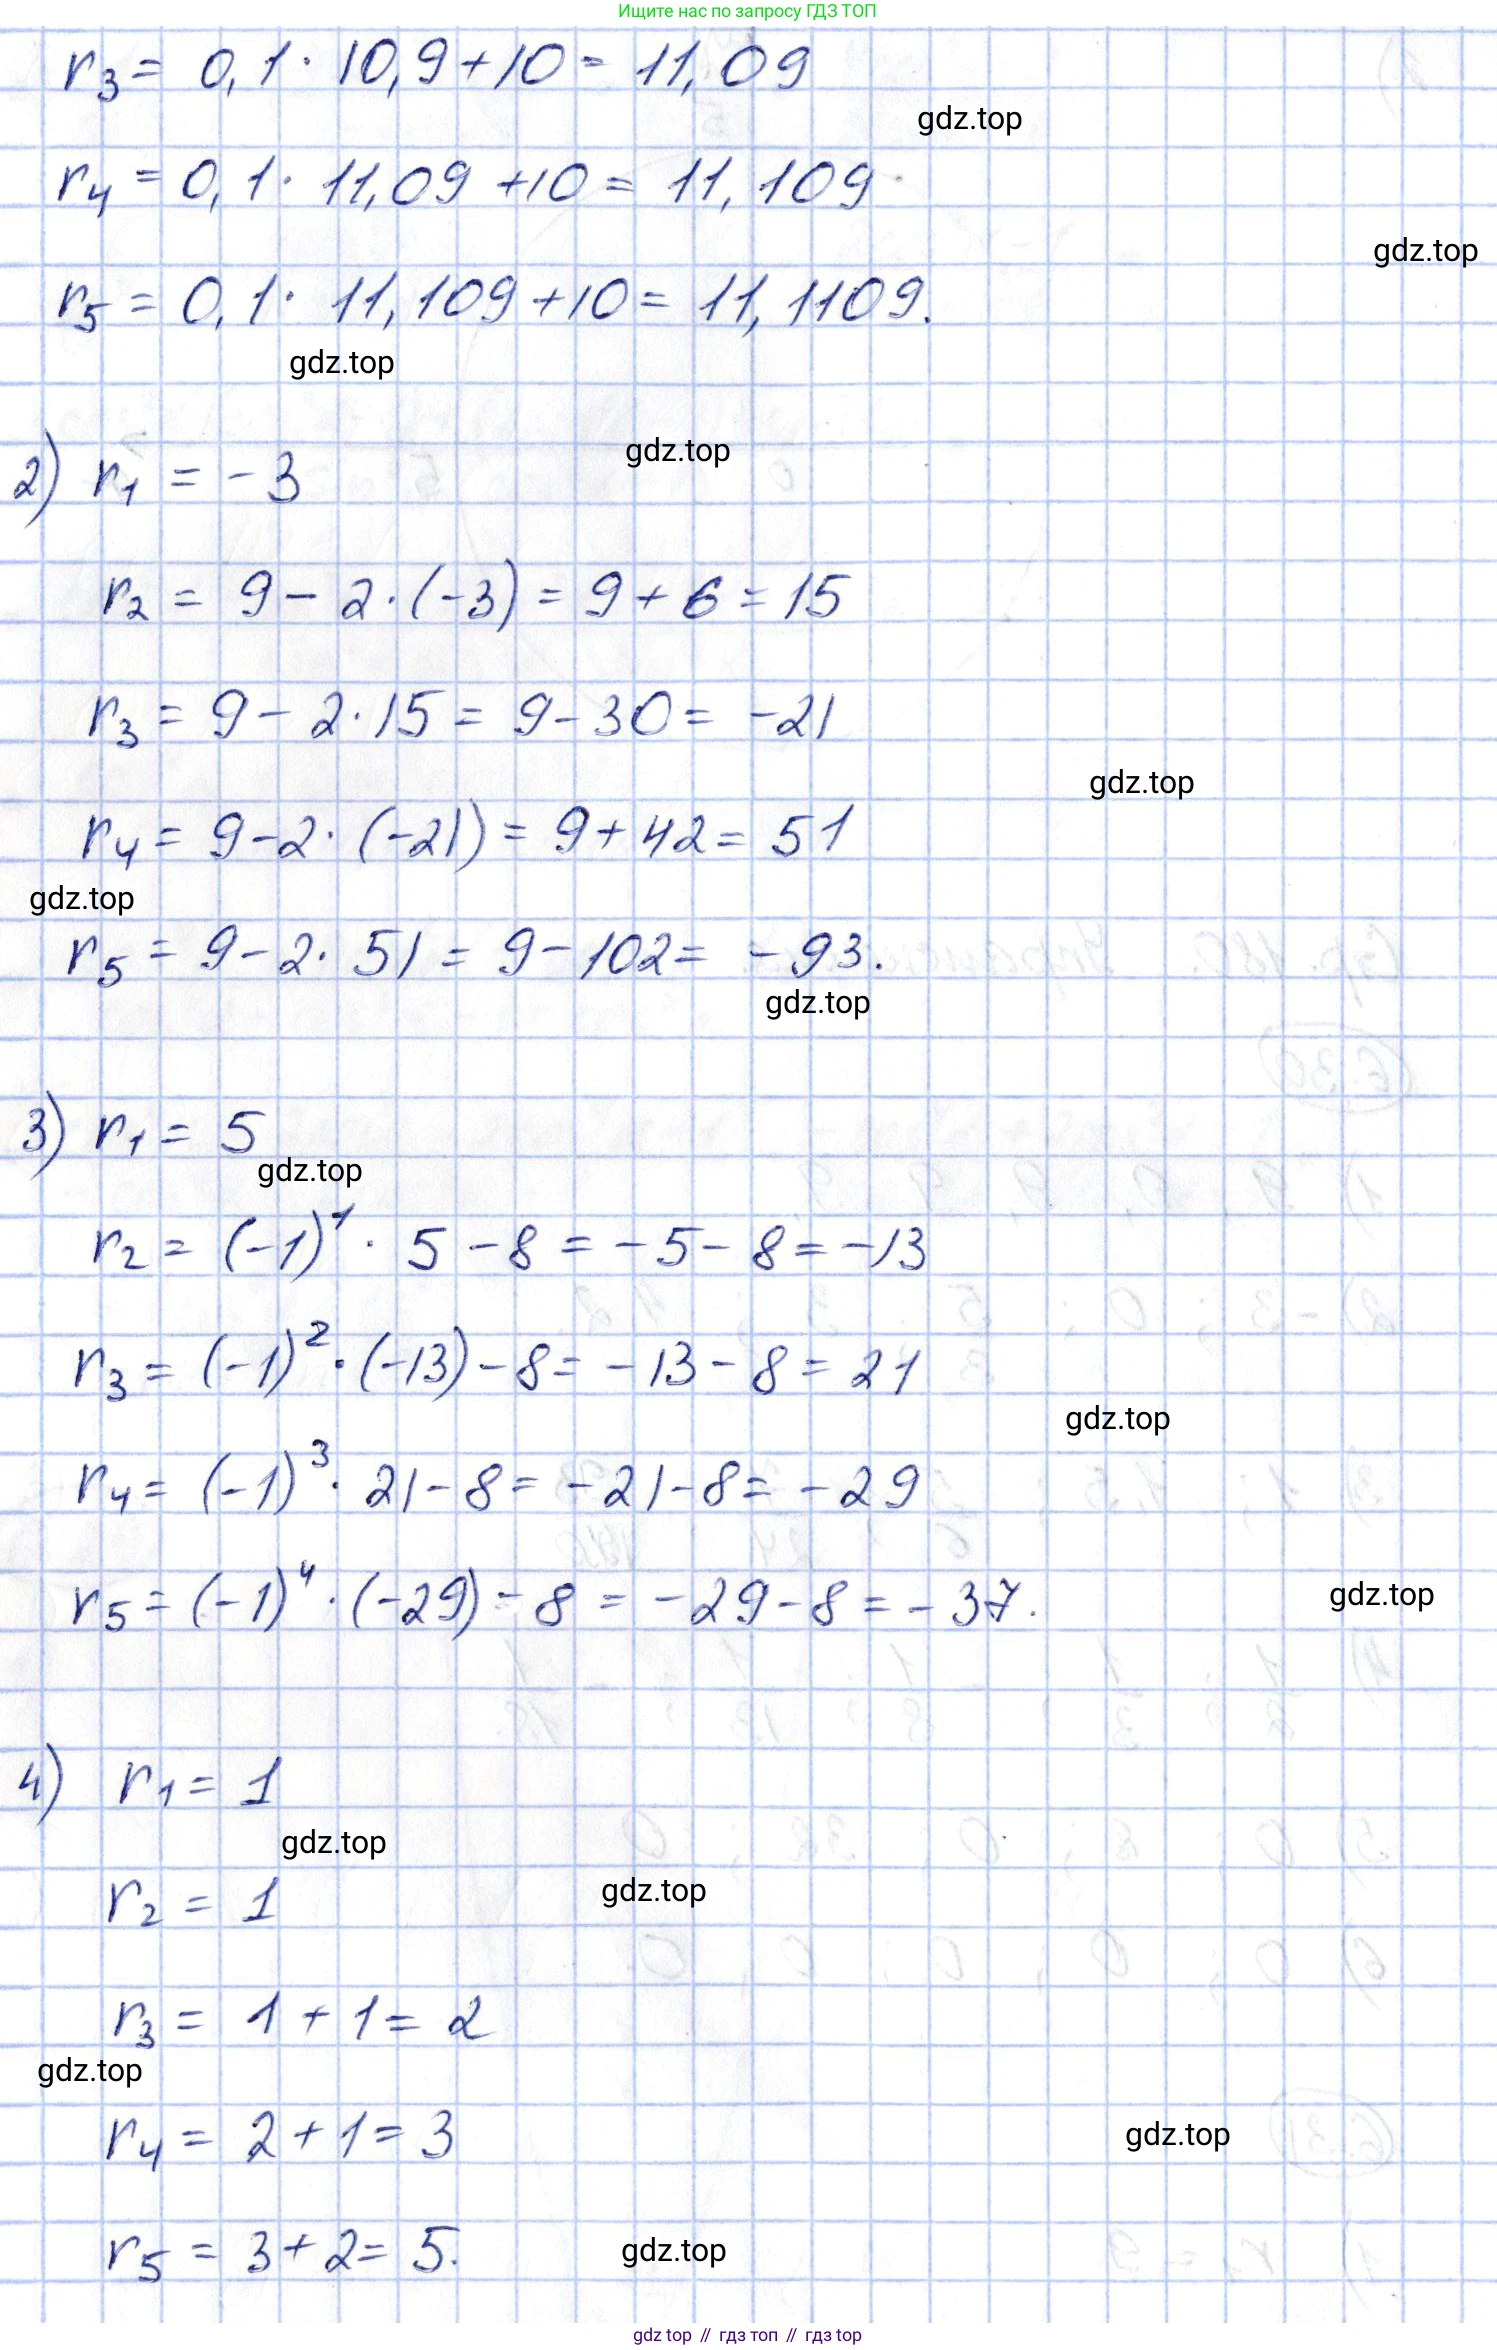 Ищите нас по запросу ГДЗ ТОП
r₃ = 0,1 · 10,9 + 10 = 11,09
gdz.top
r₄ = 0,1 · 11,09 + 10 = 11,109
gdz.top
r₅ = 0,1 · 11,109 + 10 = 11,1109.
gdz.top
gdz.top
2) r₁ = -3
r₂ = 9 - 2 · (-3) = 9 + 6 = 15
r₃ = 9 - 2 · 15 = 9 - 30 = -21
gdz.top
r₄ = 9 - 2 · (-21) = 9 + 42 = 51
gdz.top
r₅ = 9 - 2 · 51 = 9 - 102 = -93.
gdz.top
3) r₁ = 5
gdz.top
r₂ = (-1)¹ · 5 - 8 = -5 - 8 = -13
r₃ = (-1)² · (-13) - 8 = -13 - 8 = 21
gdz.top
r₄ = (-1)³ · 21 - 8 = -21 - 8 = -29
r₅ = (-1)⁴ · (-29) - 8 = -29 - 8 = -37.
gdz.top
4) r₁ = 1
gdz.top
r₂ = 1
gdz.top
r₃ = 1 + 1 = 2
gdz.top
r₄ = 2 + 1 = 3
gdz.top
r₅ = 3 + 2 = 5.
gdz.top
gdz top // гдз топ // гдз top